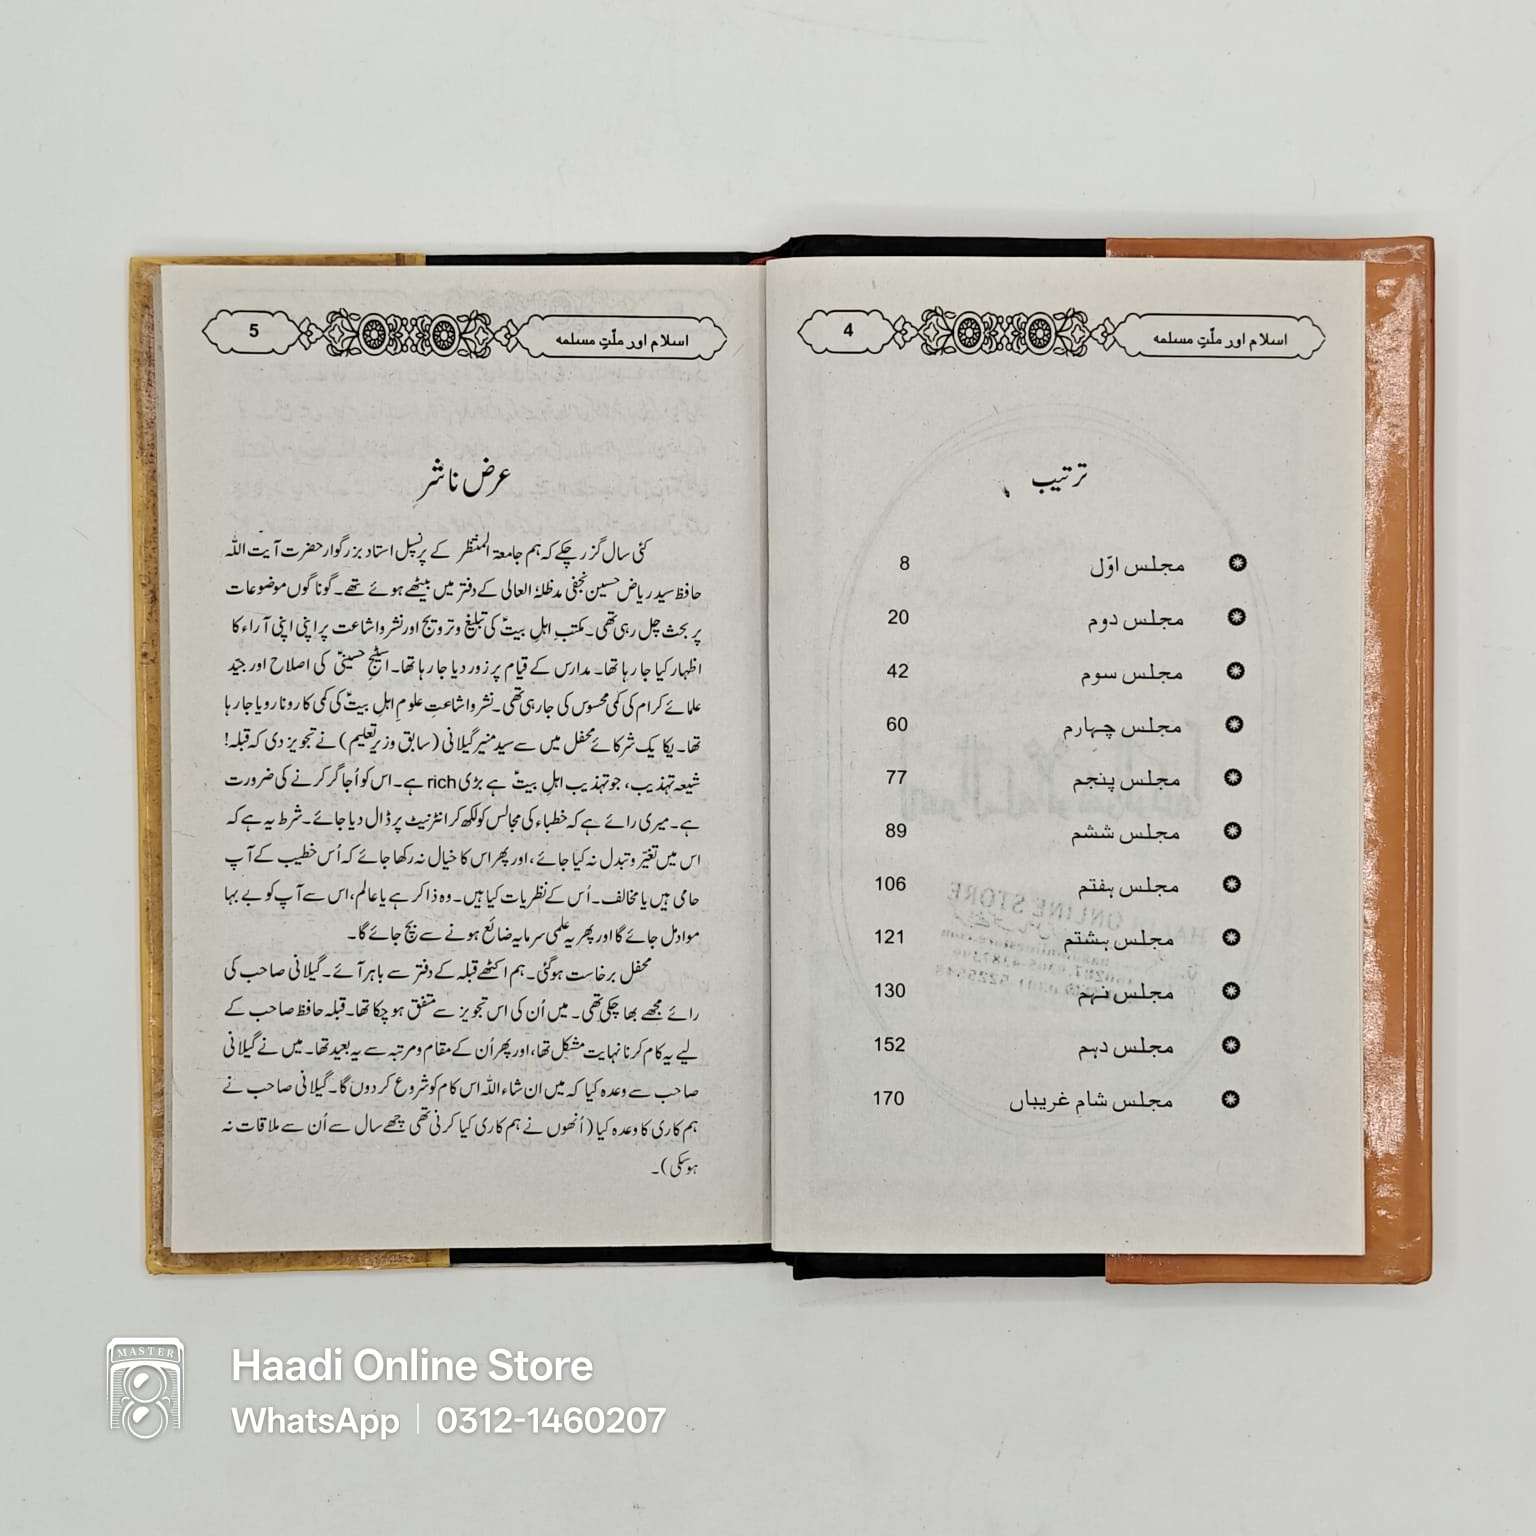 اسلام اور ملّتِ مسلمہ
4
ترتیب
مجلس اوّل 8
مجلس دوم 20
مجلس سوم 42
مجلس چہارم 60
مجلس پنجم 77
مجلس ششم 89
مجلس ہفتم 106
مجلس ہشتم 121
مجلس نہم 130
مجلس دہم 152
مجلس شامِ غریباں 170
اسلام اور ملّتِ مسلمہ
5
عرض ناشر
کئی سال گزر چکے کہ ہم جامعۃ المنتظر کے پرنسپل استاد بزرگوار حضرت آیت اللہ
حافظ سید ریاض حسین نجفی مدظلہٗ العالی کے دفتر میں بیٹھے ہوئے تھے۔ گوناگوں موضوعات
پر بحث چل رہی تھی۔ مکتبِ اہلِ بیتؑ کی تبلیغ و ترویج اور نشرواشاعت پر اپنی اپنی آراء کا
اظہار کیا جا رہا تھا۔ مدارس کے قیام پر زور دیا جا رہا تھا۔ اسٹیج حسینیؑ کی اصلاح اور جیّد
علمائے کرام کی کمی محسوس کی جا رہی تھی۔ نشرواشاعتِ علومِ اہلِ بیتؑ کی کمی کا رونا رویا جا رہا
تھا۔ یکایک شرکائے محفل میں سے سید منیر گیلانی (سابق وزیرِ تعلیم) نے تجویز دی کہ قبلہ!
شیعہ تہذیب، جو تہذیب اہلِ بیتؑ ہے بڑی rich ہے۔ اس کو اُجاگر کرنے کی ضرورت
ہے۔ میری رائے ہے کہ خطباء کی مجالس کو لکھ کر انٹرنیٹ پر ڈال دیا جائے۔ شرط یہ ہے کہ
اس میں تغیّر و تبدل نہ کیا جائے، اور پھر اس کا خیال نہ رکھا جائے کہ اُس خطیب کے آپ
حامی ہیں یا مخالف۔ اُس کے نظریات کیا ہیں۔ وہ ذاکر ہے یا عالم، اس سے آپ کو بے بہا
مواد مل جائے گا اور پھر یہ علمی سرمایہ ضائع ہونے سے بچ جائے گا۔
محفل برخاست ہوگئی۔ ہم اکٹھے قبلہ کے دفتر سے باہر آئے۔ گیلانی صاحب کی
رائے مجھے بھا چکی تھی۔ میں اُن کی اس تجویز سے متفق ہو چکا تھا۔ قبلہ حافظ صاحب کے
لیے یہ کام کرنا نہایت مشکل تھا، اور پھر اُن کے مقام و مرتبہ سے یہ بعید تھا۔ میں نے گیلانی
صاحب سے وعدہ کیا کہ میں ان شاء اللہ اس کام کو شروع کر دوں گا۔ گیلانی صاحب نے
ہم کاری کا وعدہ کیا (اُنھوں نے ہم کاری کیا کرنی تھی چھے سال سے اُن سے ملاقات نہ
ہوسکی)۔
MASTER
Haadi Online Store
WhatsApp | 0312-1460207